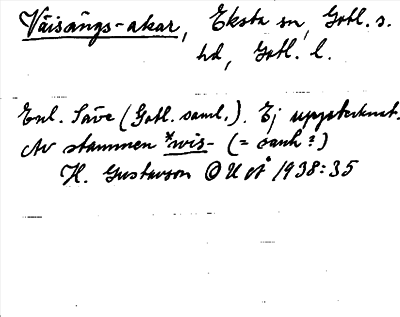 Väisängs-akar, Eksta sn, Gotl. s.
hd, Gotl. l.
Enl. Säve (Gotl. saml.). Ej upptecknat.
Av stammen *wis- (= sank?)
H. Gustavson OUÅ 1938:35